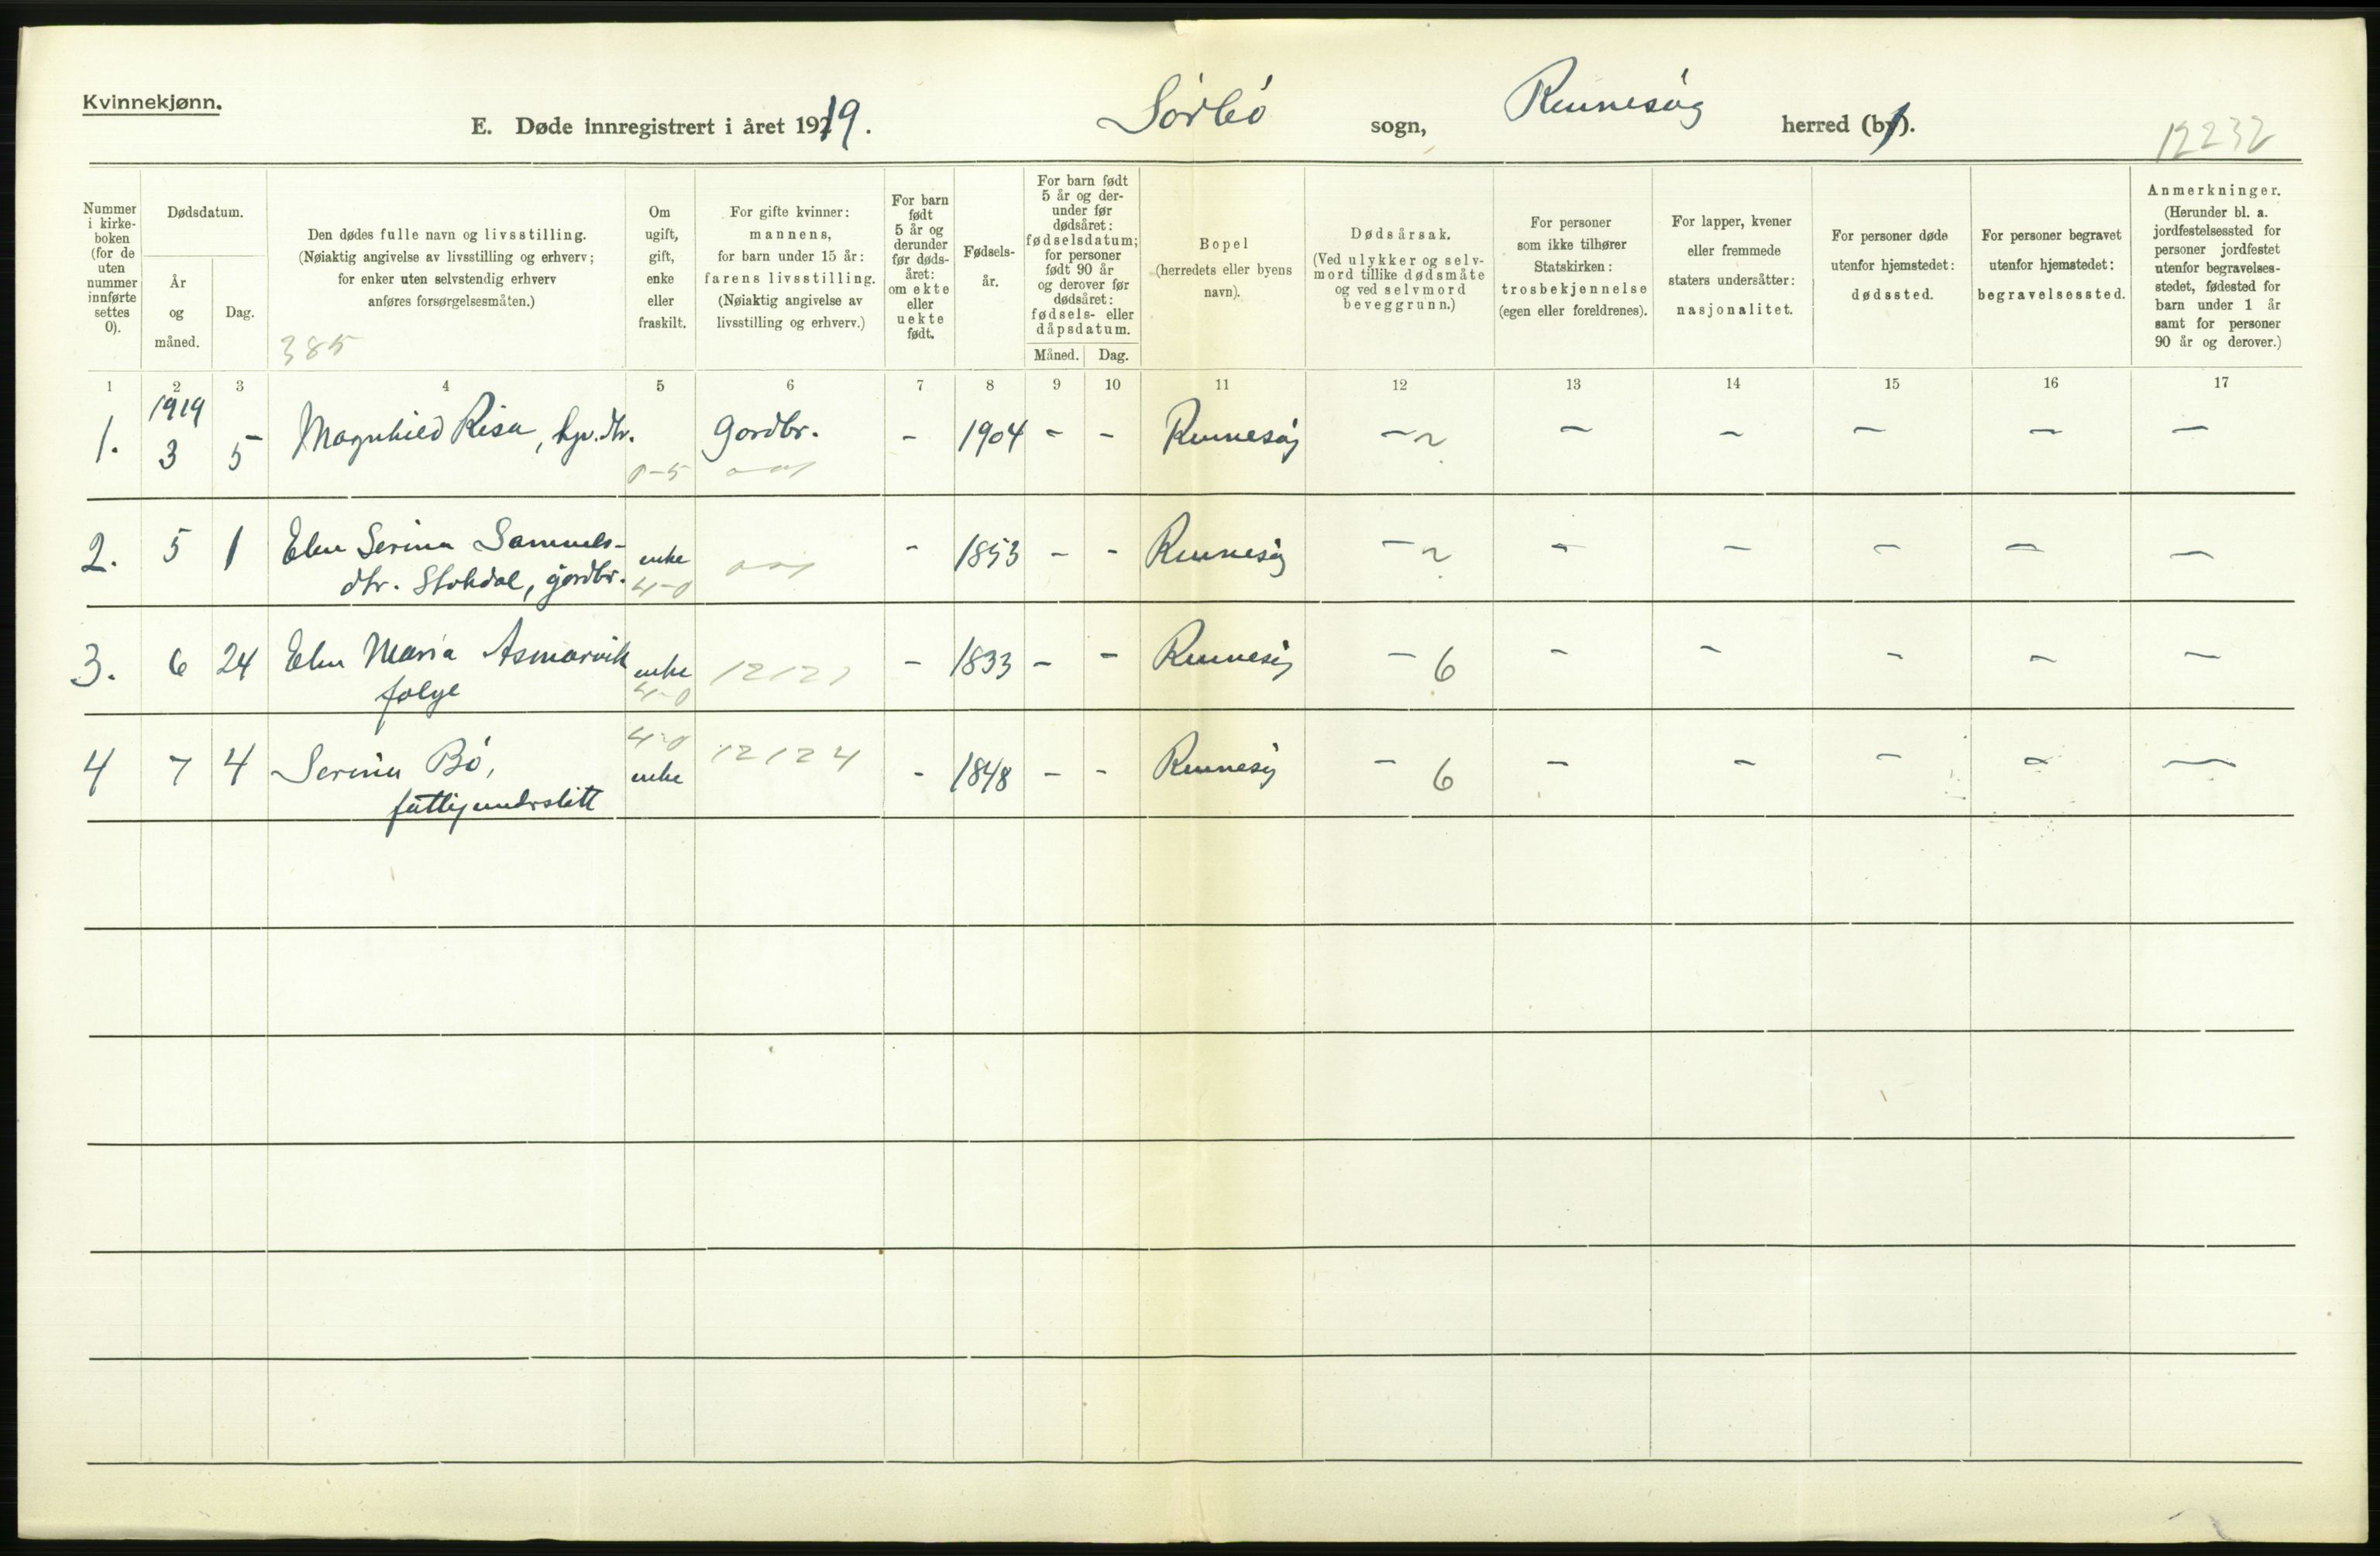 Kvinnekjønn.
E. Døde innregistrert i året 1919.
Sörbö sogn, Rennesöy herred (by).
12232
Nummer i kirke-boken (for de uten nummer innførte settes 0).
Dødsdatum.
År og måned.
Dag.
Den dødes fulle navn og livsstilling.
(Nøiaktig angivelse av livsstilling og erhverv;
for enker uten selvstendig erhverv
anføres forsørgelsesmåten.)
385
Om ugift, gift, enke eller fraskilt.
For gifte kvinner:
mannens,
for barn under 15 år:
farens livsstilling.
(Nøiaktig angivelse av
livsstilling og erhverv.)
For barn født 5 år og derunder før døds-året: om ekte eller uekte født.
Fødsels-år.
For barn født 5 år og der-under før dødsåret: fødselsdatum; for personer født 90 år og derover før dødsåret: fødsels- eller dåpsdatum.
Måned. Dag.
Bopel
(herredets eller byens
navn).
Dødsårsak.
(Ved ulykker og selv-
mord tillike dødsmåte
og ved selvmord
beveggrunn.)
For personer
som ikke tilhører
Statskirken:
trosbekjennelse
(egen eller foreldrenes).
For lapper, kvener
eller fremmede
staters undersåtter:
nasjonalitet.
For personer døde
utenfor hjemstedet:
dødssted.
For personer begravet
utenfor hjemstedet:
begravelsessted.
Anmerkninger.
(Herunder bl. a.
jordfestelsessted for
personer jordfestet
utenfor begravelses-
stedet, fødested for
barn under 1 år
samt for personer
90 år og derover.)
1 2 3 4 5 6 7 8 9 10 11 12 13 14 15 16 17
1919
1. 3 5 Magnhild Risa, gbr.dtr. gardbr. - 1904 - - Rennesöy - ~ - - - - -
0-5
2. 5 1 Elen Serina Samuels- enke - 1853 - - Rennesöy - ~ - - - - -
dtr. Stokdal, gardbr. 4-0
3. 6 24 Elen Maria Asmarvik enke 12121 - 1833 - - Rennesöy - 6 - - - - -
folge 4-0
4-0
4 7 4 Serina Bö, enke 12124 - 1848 - - Rennesöy - 6 - - - - -
fattigunderstött